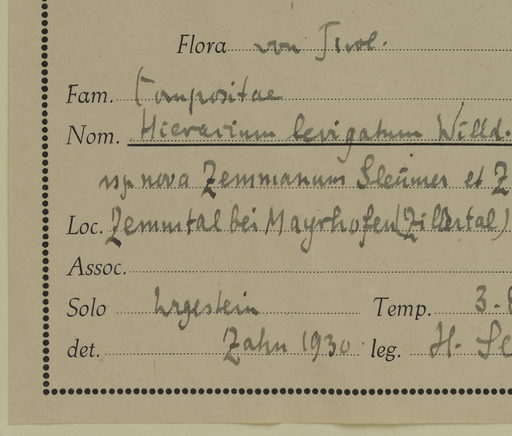 Flora von Tirol.
Fam. Compositae
Nom. Hieracium levigatum Willd.
ssp. nova Zemmanum Sleumer et Z
Loc. Zemmtal bei Mayrhofen (Zillertal)
Assoc.
Solo Urgestein Temp. 3-8
det. Zahn 1930. leg. H. Sl